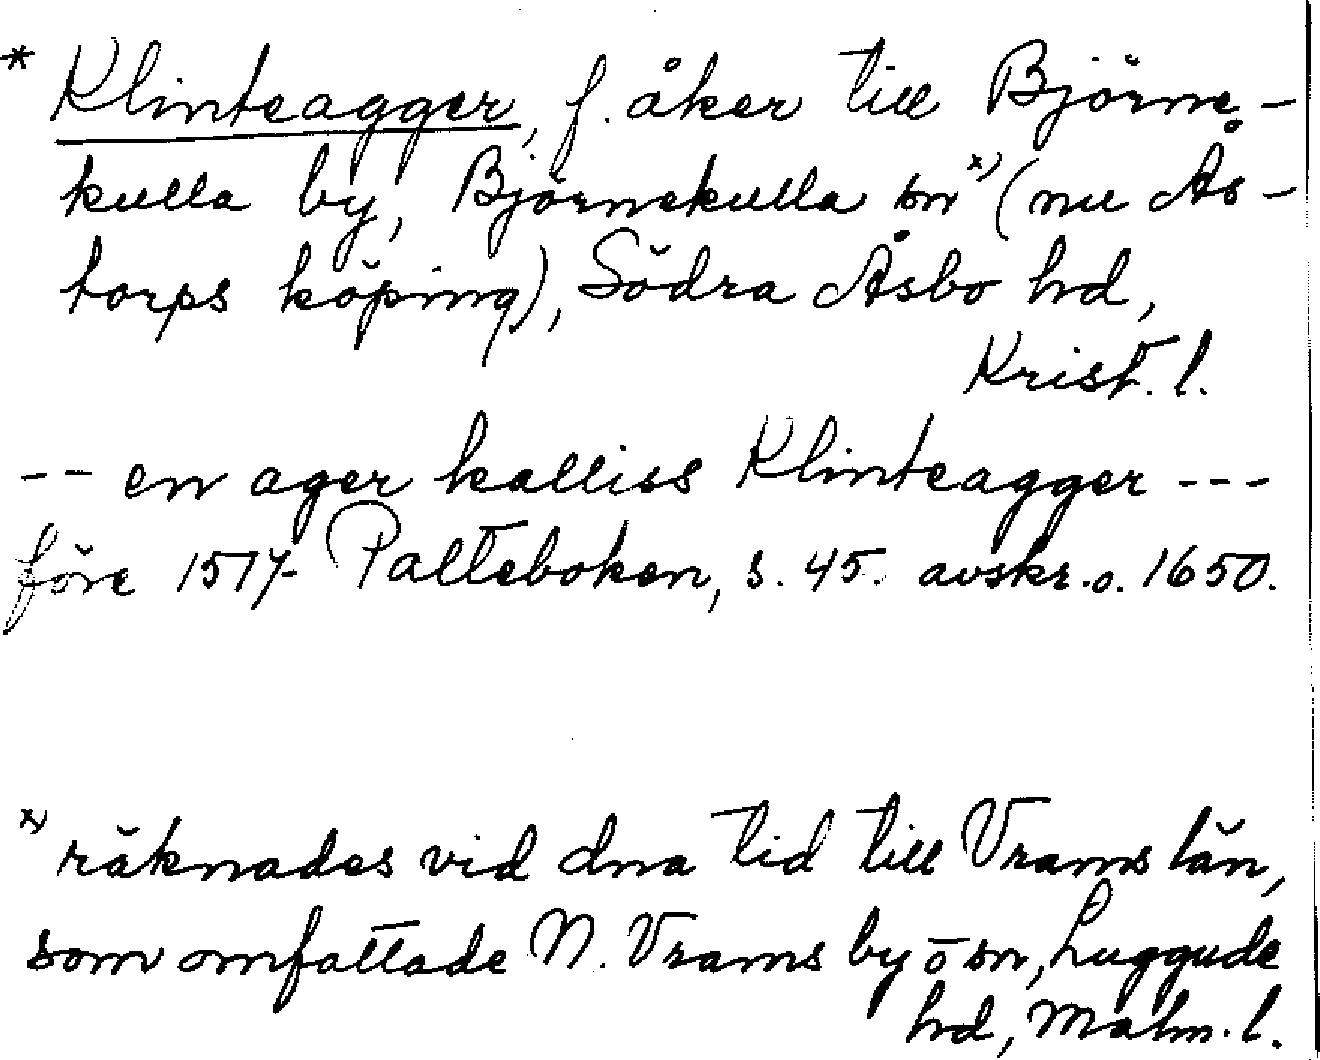 * Klinteagger, f. åker till Björne-
kulla by, Björnekulla sn x) (nu Ås-
torps köping), Södra Åsbo hd,
Krist. l.
-- en ager kalliss Klinteagger ---
före 1517 Palteboken, s. 45. avskr. o. 1650.
x) räknades vid dna tid till Vrams län,
som omfattade N. Vrams by o sn, Luggude
hd, Malm. l.